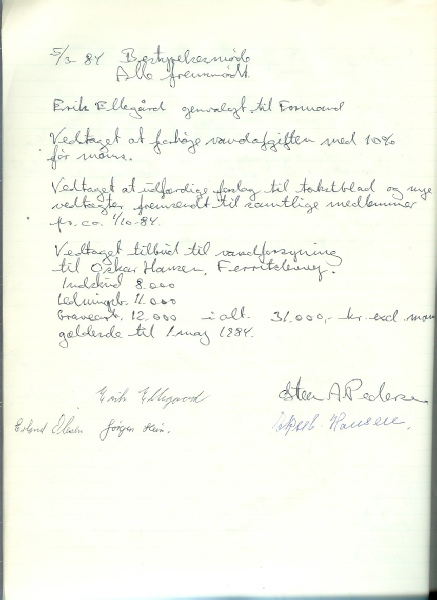 5/3 84 Bestyrelsesmøde
Alle fremmødt.
Erik Ellegård genvalgt til Formand
Vedtaget at forhøje vandafgiften med 10%
før moms.
Vedtaget at udfærdige forslag til takstblad og nye
vedtægter fremsendt til samtlige medlemmer
pr. ca. 1/10-84.
Vedtaget tilbud til vandforsyning
til Oskar Hansen, Ferritslevvej.
Indskud 8.000
Ledningsb. 11.000
Gravearb. 12.000 i alt 31.000,- kr excl moms
gældende til 1 maj 1984.
Erik Ellegaard Sten A. Pedersen
Erland Olsen Jørgen Hansen.